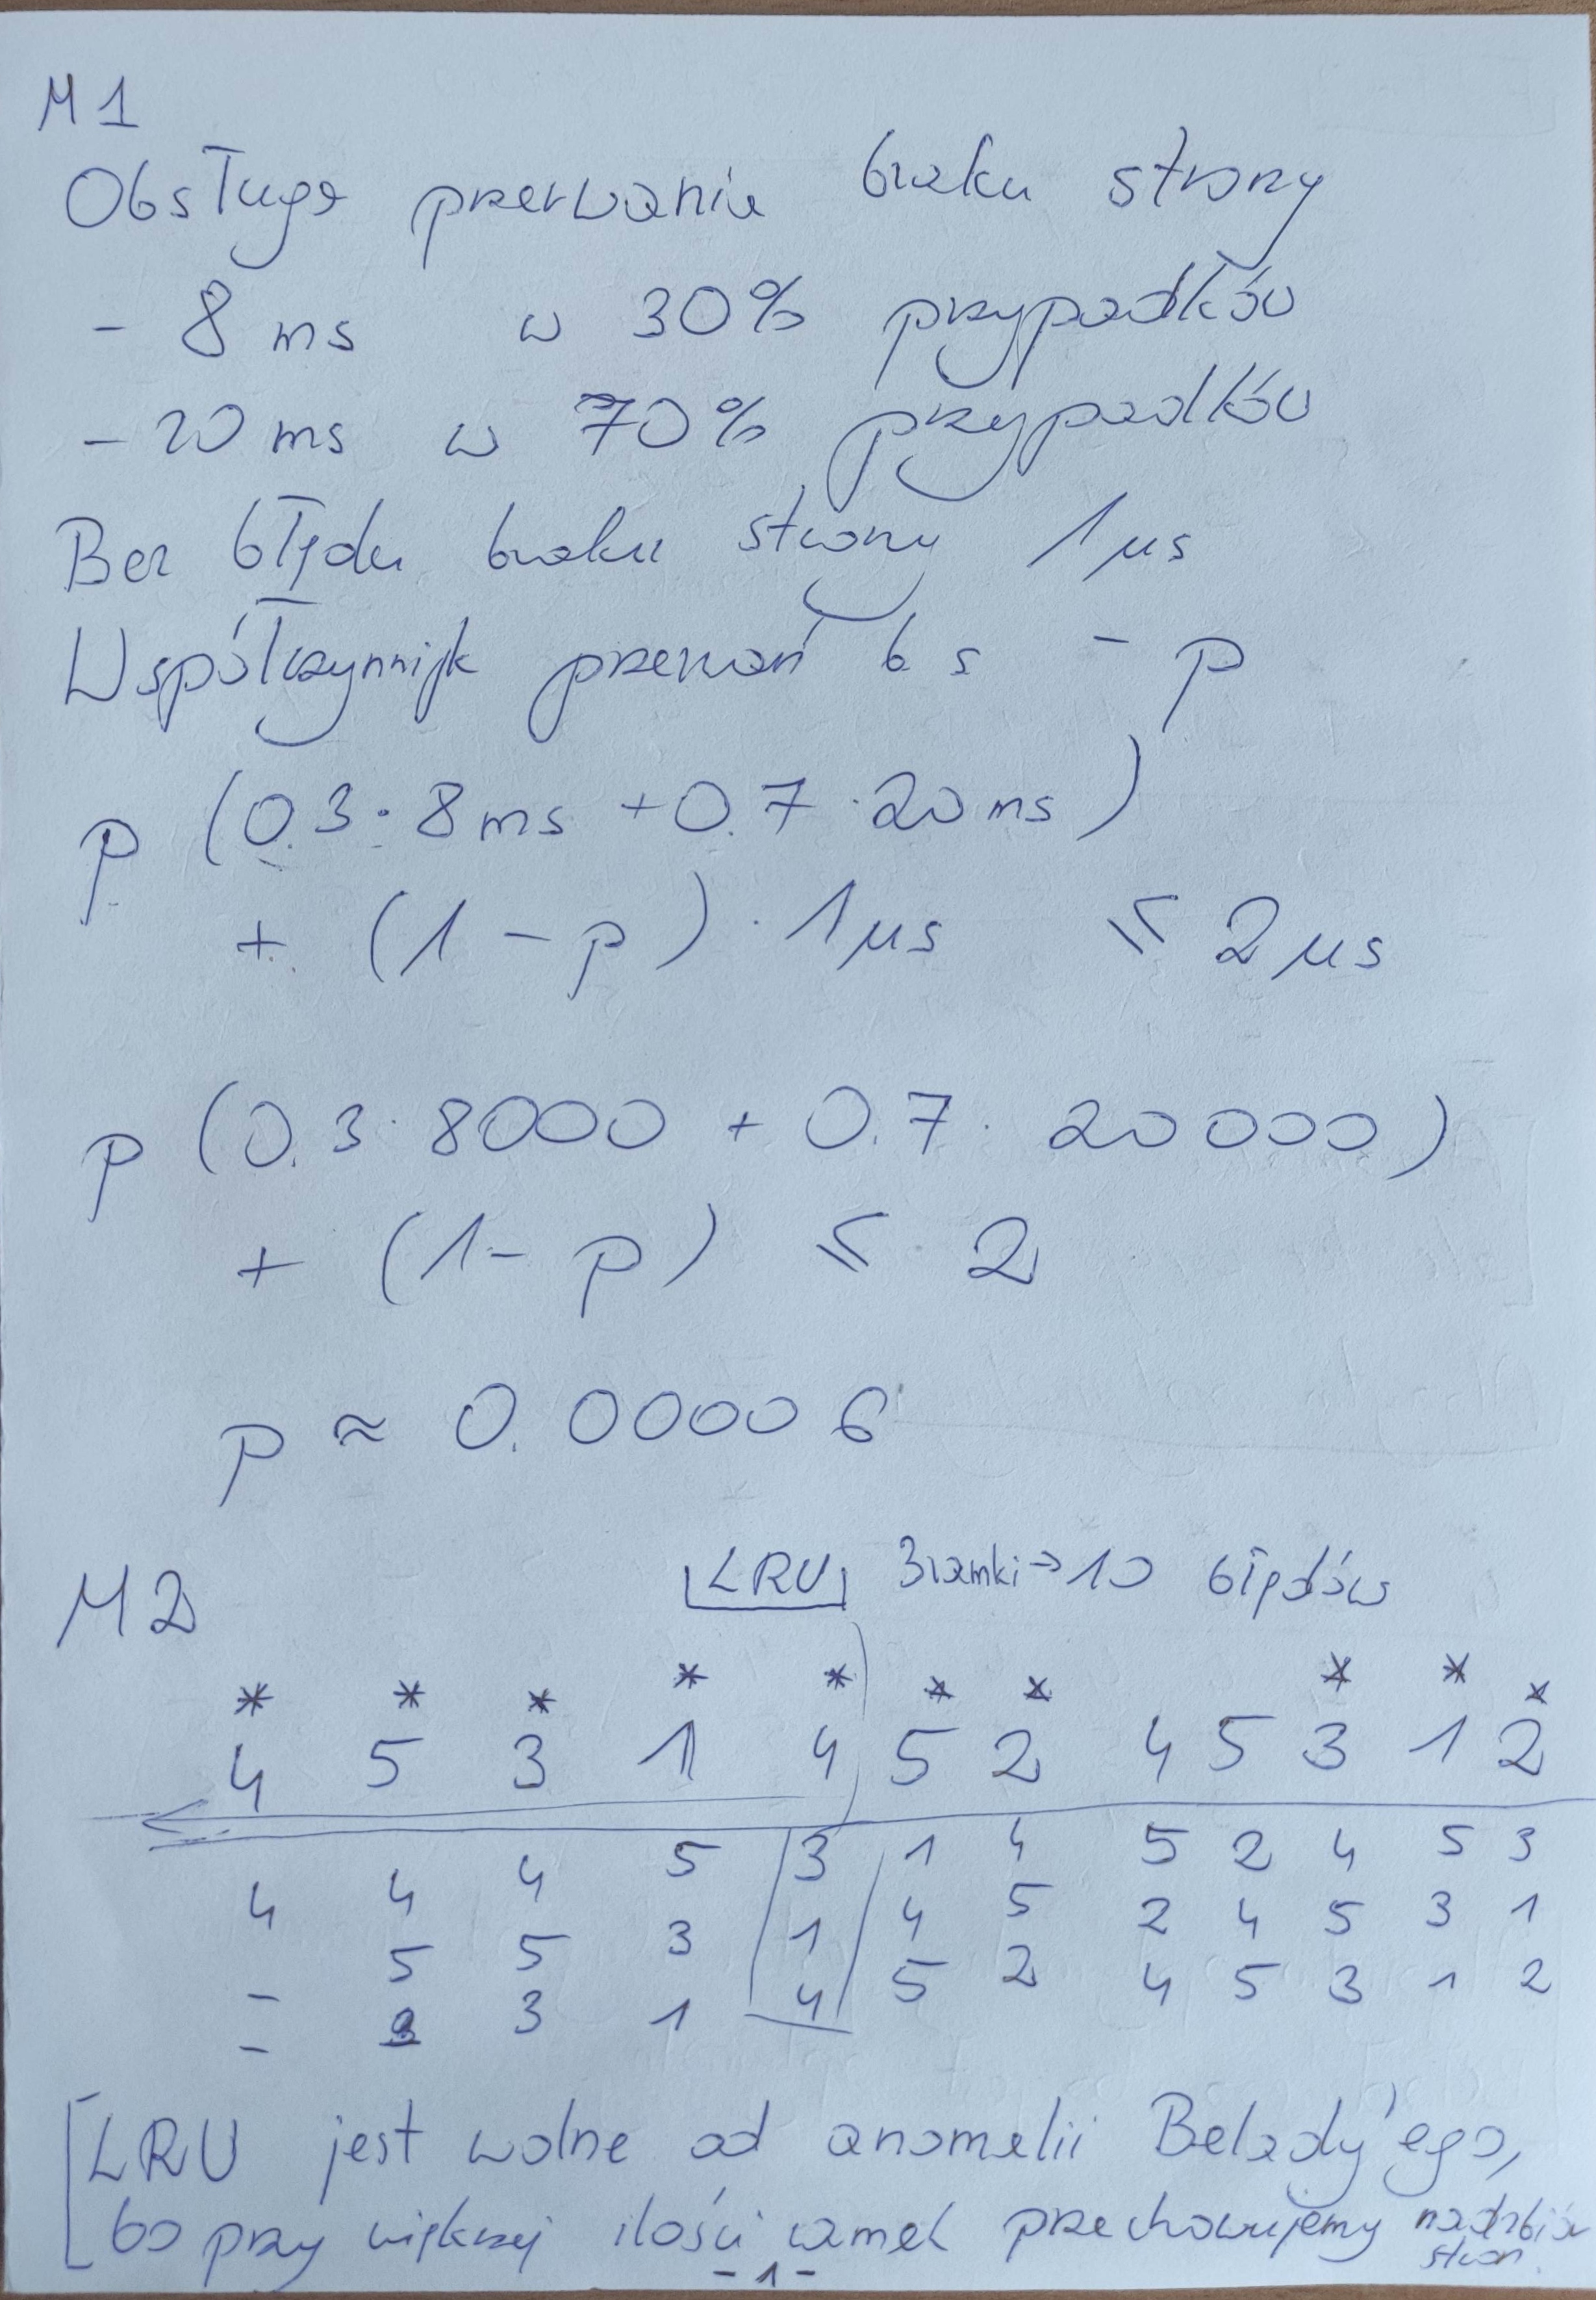 M1
Obsługa przerwania braku strony
- 8 ms w 30% przypadków
- 20 ms w 70% przypadków
Bez błędu braku strony 1 μs
Współczynnik przerwań b s - p
p (0.3 · 8 ms + 0.7 · 20 ms)
+ (1 - p) · 1 μs ≤ 2 μs
p (0.3 · 8000 + 0.7 · 20000)
+ (1 - p) ≤ 2
p ≈ 0.00006
M2 LRU 3 ramki → 10 błędów
* * * * * * * * * *
4 5 3 1 4 5 2 4 5 3 1 2
4 4 4 5 3 1 4 5 2 4 5 3
- 5 5 3 1 4 5 2 4 5 3 1
- 3 1 4 5 2 4 5 3 1 2
LRU jest wolne od anomalii Belady'ego,
bo przy większej ilości ramek przechowujemy nadzbiór stron
- 1 -